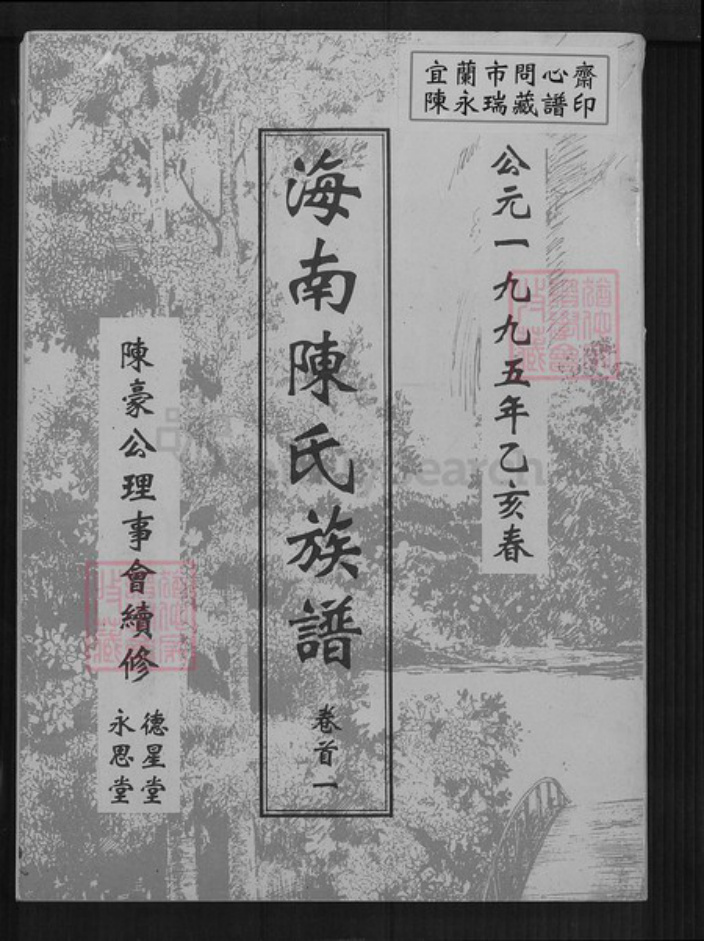 宜蘭市問心齋
陳永瑞藏譜印
公元一九九五年乙亥春
海南陳氏族譜
卷首一
陳豪公理事會續修
德星堂
永思堂
FamilySearch